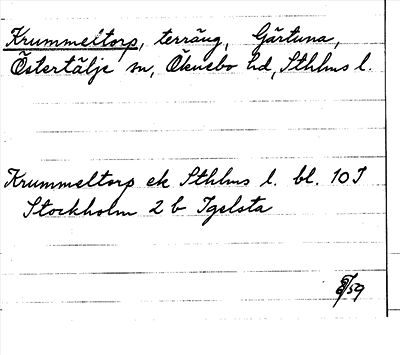 Krummeltorp, terräng, Gärtuna,
Östertälje sn, Öknebo hd, Sthlms l.
Krummeltorp ek Sthlms l. bl. 10 I
Stockholm 2 b Igelsta
/59